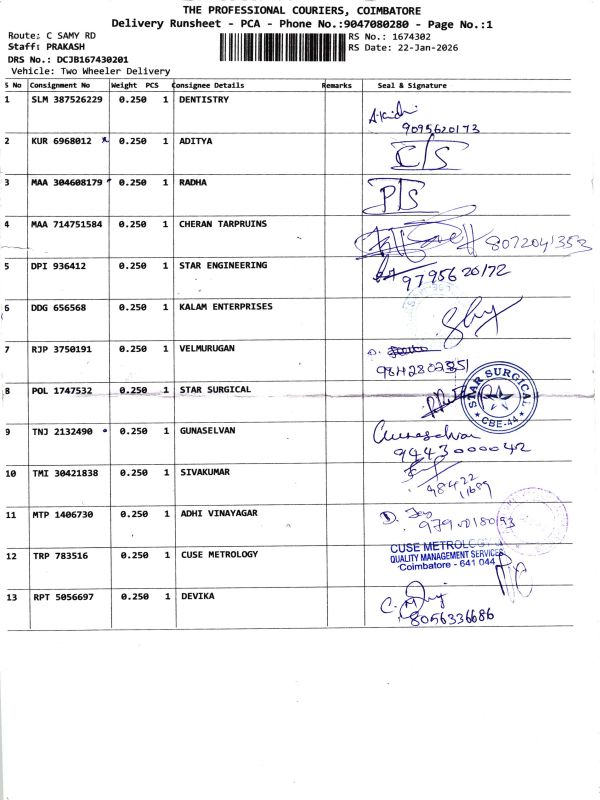 THE PROFESSIONAL COURIERS, COIMBATORE
Delivery Runsheet - PCA - Phone No.:9047080280 - Page No.:1
Route: C SAMY RD RS No.: 1674302
Staff: PRAKASH RS Date: 22-Jan-2026
DRS No.: DCJB167430201
Vehicle: Two Wheeler Delivery
S No Consignment No Weight PCS Consignee Details Remarks Seal & Signature
1 SLM 387526229 0.250 1 DENTISTRY
9095620173
2 KUR 6968012 0.250 1 ADITYA C/S
3 MAA 304608179 0.250 1 RADHA P/S
4 MAA 714751584 0.250 1 CHERAN TARPRUINS 8072041353
5 DPI 936412 0.250 1 STAR ENGINEERING 9795620172
6 DDG 656568 0.250 1 KALAM ENTERPRISES
7 RJP 3750191 0.250 1 VELMURUGAN
8 POL 1747532 0.250 1 STAR SURGICAL STAR SURGICAL CBE-44
9 TNJ 2132490 0.250 1 GUNASELVAN Gunaselvan
9443000042
10 TMI 30421838 0.250 1 SIVAKUMAR
98422
11689
11 MTP 1406730 0.250 1 ADHI VINAYAGAR
12 TRP 783516 0.250 1 CUSE METROLOGY CUSE METROLOGY
QUALITY MANAGEMENT SERVICES
Coimbatore - 641 044
13 RPT 5056697 0.250 1 DEVIKA
8056336686